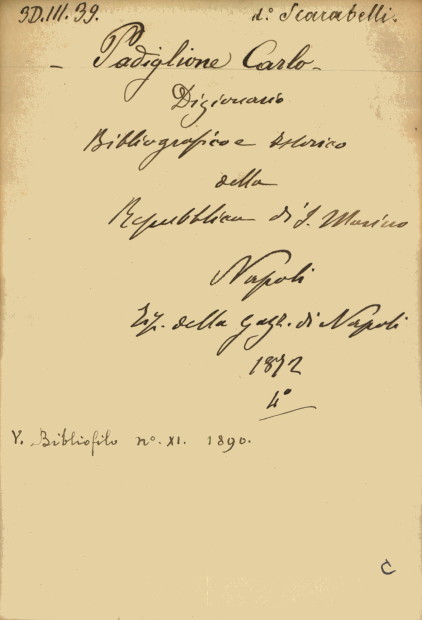 3D.III.39. d.º Scarabelli.
- Padiglione Carlo -
Dizionario
Bibliografico e Istorico
della
Repubblica di S. Marino
Napoli
Tip. della Gazz. di Napoli
1872
4º
V. Bibliofilo nº. XI. 1890.
C